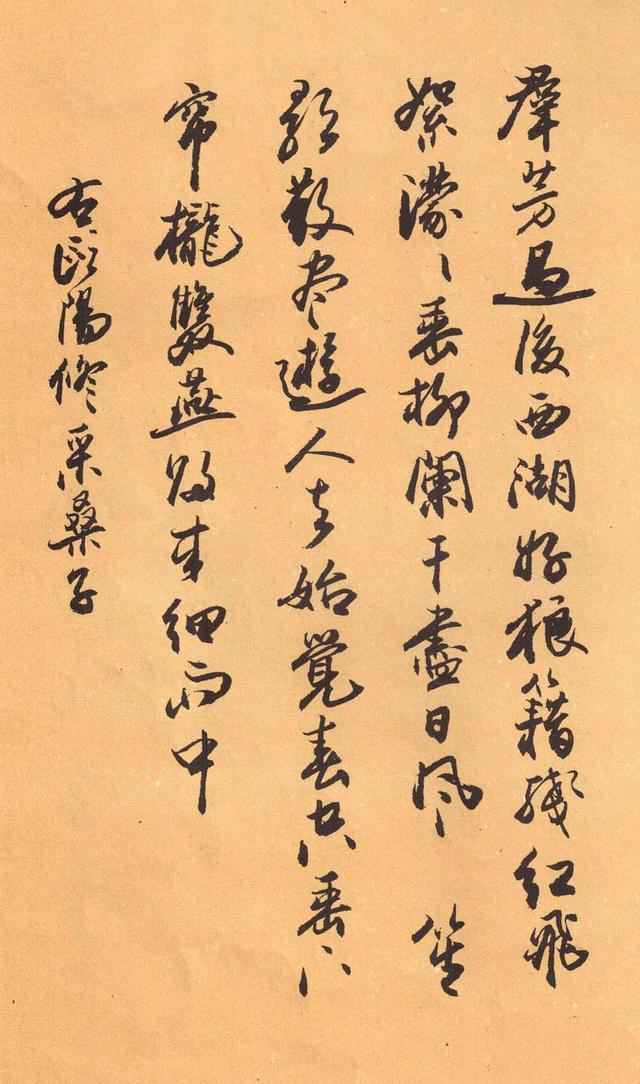 羣芳過後西湖好狼籍殘紅飛
絮濛〻垂柳闌干盡日風 笙
歌散盡遊人去始覺春空垂下
帘櫳雙燕歸來細雨中
右歐陽修采桑子